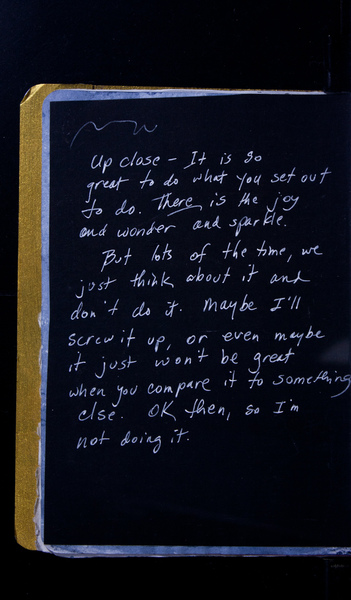 Up close – It is so
great to do what you set out
to do. There is the joy
and wonder and sparkle.
But lots of the time, we
just think about it and
don't do it. Maybe I'll
screw it up, or even maybe
it just won't be great
when you compare it to something
else. OK then, so I'm
not doing it.